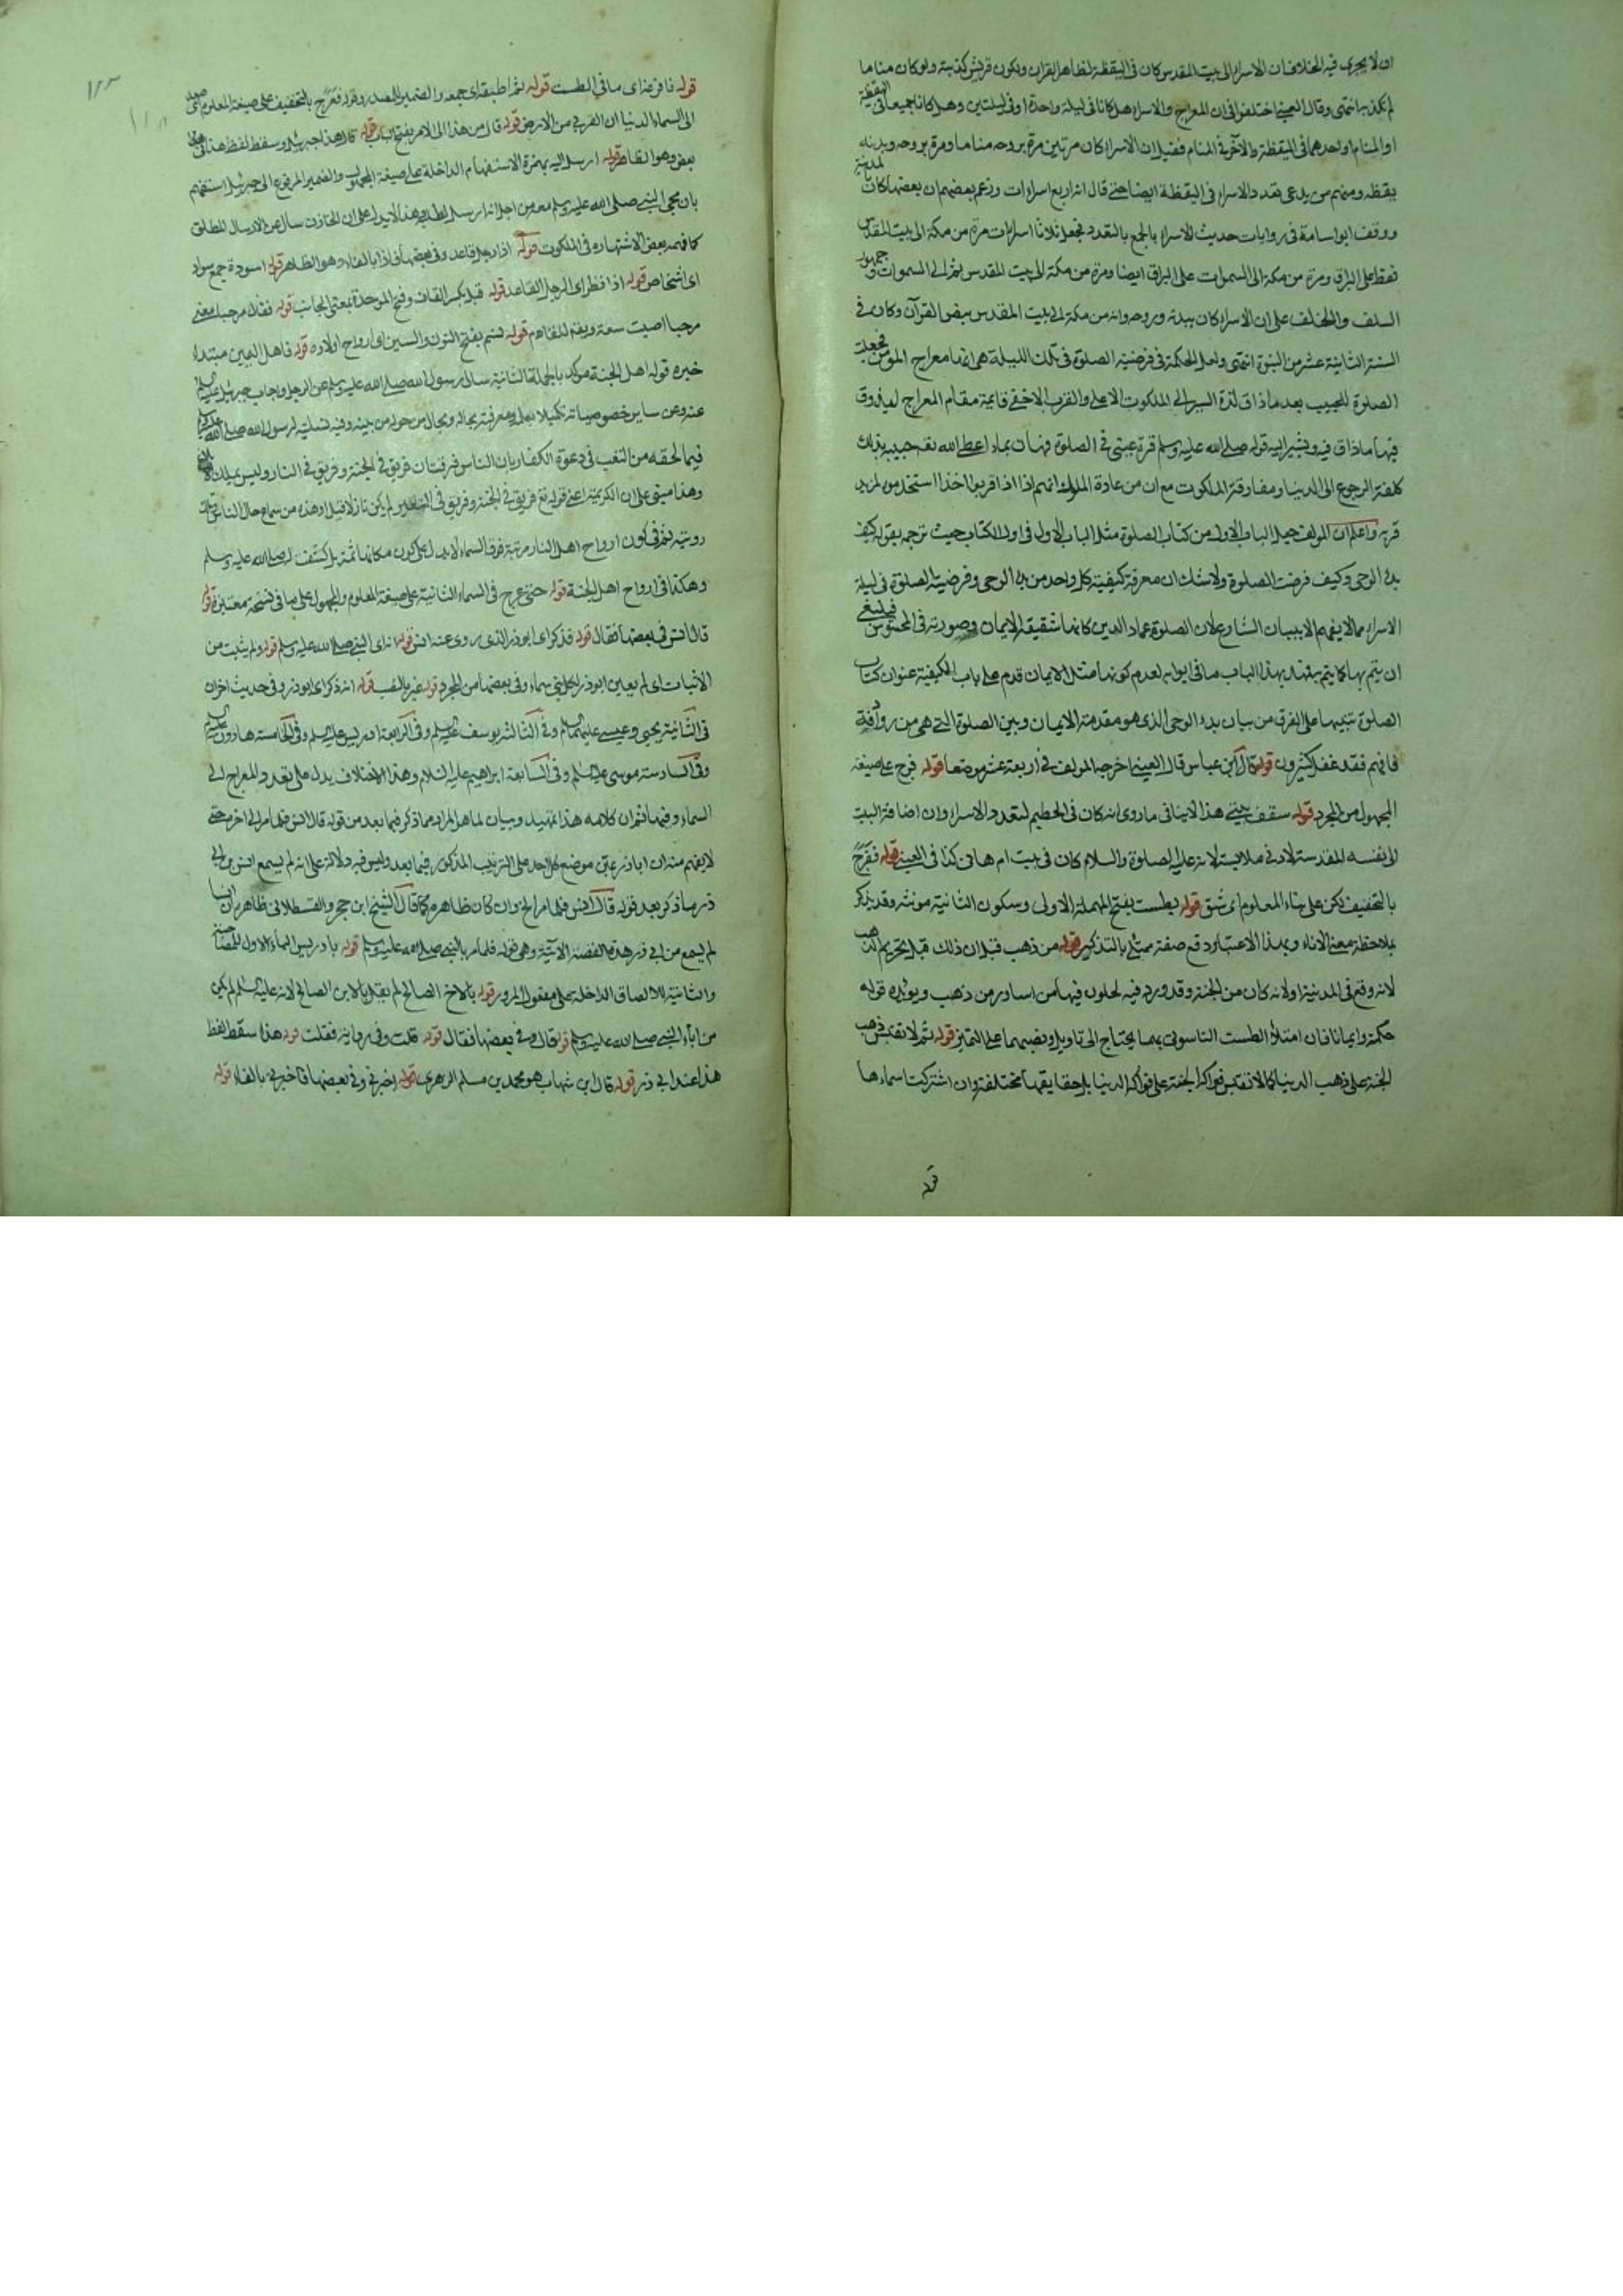 ان لا يجرى فيه الخلاف ان الاسراء الى بيت المقدس كان فى اليقظة لظاهر القران ولكون قريش كذبته ولو كان مناما
لم يكذب انتهى وقال العينى اختلفوا فى ان المعراج والاسراء هل كانا فى ليلة واحدة او فى ليلتين وهل كانا جميعا فى اليقظة
او المنام او احدهما فى اليقظة والآخر فى المنام فقيل ان الاسراء كان مرتين مرة بروحه مناما ومرة بروحه وبدنه
يقظه ومنهم من يدعى تعدد الاسراء فى اليقظة ايضا حتى قال انه اربع اسراءات وزعم بعضهم ان بعضها كان بالمدينة
ووقف ابو اسامة فى روايات حديث الاسراء بالجمع بالتعدد فجعل ثلاثا اسراءات مرة من مكة الى بيت المقدس
فقط على البراق ومرة من مكة الى السموات على البراق ايضا ومرة من مكة الى بيت المقدس ثم الى السموات وجمهور
السلف والخلف على ان الاسراء كان ببدنه وروحه وانه من مكة الى بيت المقدس بنص القرآن وكان فى
السنة الثانية عشر من النبوة انتهى ولعل الحكمة فى فرضية الصلوة فى تلك الليلة هى انها معراج المؤمن فجعلت
الصلوة للحبيب بعد ما ذاق لذة السير الى الملكوت الاعلى والقرب الاخفى قايمة مقام المعراج ليذوق
فيها ما ذاق فيه ويشير اليه قوله صلى الله عليه وسلم قرة عينى فى الصلوة
كلفة الرجوع الى الدنيا ومفارقة الملكوت مع ان من عادة الملوك انهم اذا
قربه واعلم ان المولف جعل الباب الاول من كتاب الصلوة مثل الباب الاول فى اول الكتاب حيث ترجم بقوله كيف
بدء الوحى وكيف فرضت الصلوة ولا شك ان معرفة كيفية كل واحد من بدء الوحى وفرضية الصلوة فى ليلة
الاسراء مما لا يفهم الا ببيان الشارع لان الصلوة عماد الدين كانها شقيقة الايمان
ان يتم بها كما يتم بهذا الباب ما فى ابوابه لعدم كونها مثل الايمان قدم على باب الكيفية عنوان كتاب
الصلوة تنبيها على الفرق من بيان بدء الوحى الذى هو مقدمة الايمان وبين الصلوة التى هى من
فافهم فقد غفل كثيرون قوله قال ابن عباس قال العينى اخرجه المولف فى اربعة عشر موضعا قوله فرج على صيغة
المجهول من المجرد قوله سقف بيتى هذا لا ينافى ما روى انه كان فى الحطيم لتعدد الاسراء وان اضافة البيت
الى نفسه المقدسة لادنى ملابسة لانه عليه الصلوة والسلام كان فى بيت ام هانى كذا فى العينى قوله ففرج
بالتخفيف لكن على بناء المعلوم اى شق قوله بطست بفتح المهملة الاولى وسكون الثانية مونثه وقد يذكر
بملاحظة معنى الاناء وبهذا الاعتبار وقع صفته ممتلى بالتذكير قوله من ذهب قيل ان ذلك قبل تحريم الذهب
لانه وقع فى المدينة او لانه كان من الجنة وقد ورد فيه لحلون فيها من اساور من ذهب ويؤيده قوله
حكمة وايمانا فان امتلاء الطست الناسوتى بهما يحتاج الى تاويل ونصبهما على التمييز قوله ثم لا نقيس ذهب
الجنة على ذهب الدنيا كما لا نقيس فواكه الجنة على فواكه الدنيا بل حقايقها مختلفة وان اشتركت اسماءها
قوله
١٢٣
قوله فافرغه اى ما فى الطست قوله ثم اطبقه اى جمعه والضمير للصدر وقوله ففرج بالتخفيف على صيغة المعلوم
الى السماء الدنيا اى القربى من الارض قوله قال من هذا الى الامر بفتح الباب قوله قال هذا جبريل وسقط لفظ هذا
بعض وهو الظاهر قوله ارسل اليه بهمزة الاستفهام الداخلة على صيغة المجهول والضمير المرفوع الى جبريل استفهم
بان مجى النبى صلى الله عليه وسلم معه من اجل انه ارسل لطلبه وهذا لا يدل على ان الخازن سال عن الارسال المطلق
كما فهمه بعض لاشتهاره فى الملكوت قوله اذا رجل قاعد وفى بعضها فاذا بالفاء وهو الظاهر قوله اسودة جمع سواد
اى اشخاص قوله اذا نظر اى الرجل القاعد قوله قبل بكسر القاف وفتح الموحدة بمعنى الجانب قوله فقال مرحبا معنى
مرحبا اصبت سعة قوله نسم بفتح النون والسين اى ارواح اولاده قوله فاهل اليمين مبتداء
خبره قوله اهل الجنة موكد بالجملة الثانية سال رسول الله صلى الله عليه وسلم عن الرجل وجاب جبريل
عنه وعن ساير خصوصياته تكميلا لعلمه ومعرفته بحاله وبحال من حوله من بنيه وفيه تسلية لرسول الله صلى الله
فيما لحقه من التعب فى دعوة الكفار بان الناس فرقتان فريق فى الجنة وفريق فى النار
وهذا مبنى على ان الكريمة اعنى قوله تع فريق فى الجنة وفريق فى السعير لم يكن نازلا قبل
رويته ثم فى كون ارواح اهل النار مرتبة فوق السماء لا يدل على كون مكانها ثمة بل كشف له صلى الله عليه وسلم
وهكذا فى ارواح اهل الجنة قوله حتى عرج فى السماء الثانية على صيغة المعلوم والمجهول على ما فى نسخة معتبرة قوله
قال انس فى بعضها فقال قوله فذكر اى ابو ذر الذى روى عنه انس قوله انه اى النبى صلى الله عليه وسلم قوله ولم يثبت من
الاثبات اى لم يعين ابو ذر لكل نبى سماء وفى بعضها من المجرد قوله غير بالنصب قوله انه ذكر اى ابو ذر وفى حديث اخر ان
فى الثانية يحيى وعيسى عليهما السلام وفى الثالثة يوسف عليه السلم وفى الرابعة ادريس عليه السلم وفى الخامسة هارون عليه السلم
وفى السادسة موسى عليه السلم وفى السابعة ابراهيم عليه السلام وهذا الاختلاف يدل على تعدد المعراج الى
السماء وفيها ثم ان كلامه هذا تمهيد وبيان لما هو المراد مما ذكر فيما بعد من قوله قال انس فلما مر الى اخره حتى
لا يفهم منه ان ابا ذر عين موضع كل احد على الترتيب المذكور فيما بعد وليس فيه دلالة على انه لم يسمع انس من ابى
ذر ما ذكر بعد قوله قال انس فلما مر الخ وان كان ظاهره كما قال الشيخ ابن حجر والقسطلانى ظاهره ان انسا
لم يسمع من ابى ذر هذه القصة الآتية وهى قوله فلما مر بالنبى صلى الله عليه وسلم قوله بادريس الباء الاول للمصاحبة
والثانية للالصاق الداخلة على مفعول المرور قوله بالاخ الصالح لم يقل بالابن الصالح لانه عليه السلم لم يكن
من اباء النبى صلى الله عليه وسلم قوله قال وفى بعضها فقال قوله قلت وفى رواية فقلت قوله هذا سقط لفظ
هذا عند ابى ذر قوله قال ابن شهاب هو محمد بن مسلم الزهرى قوله اخبرنى وفى بعضها فاخبرنى بالفاء قوله